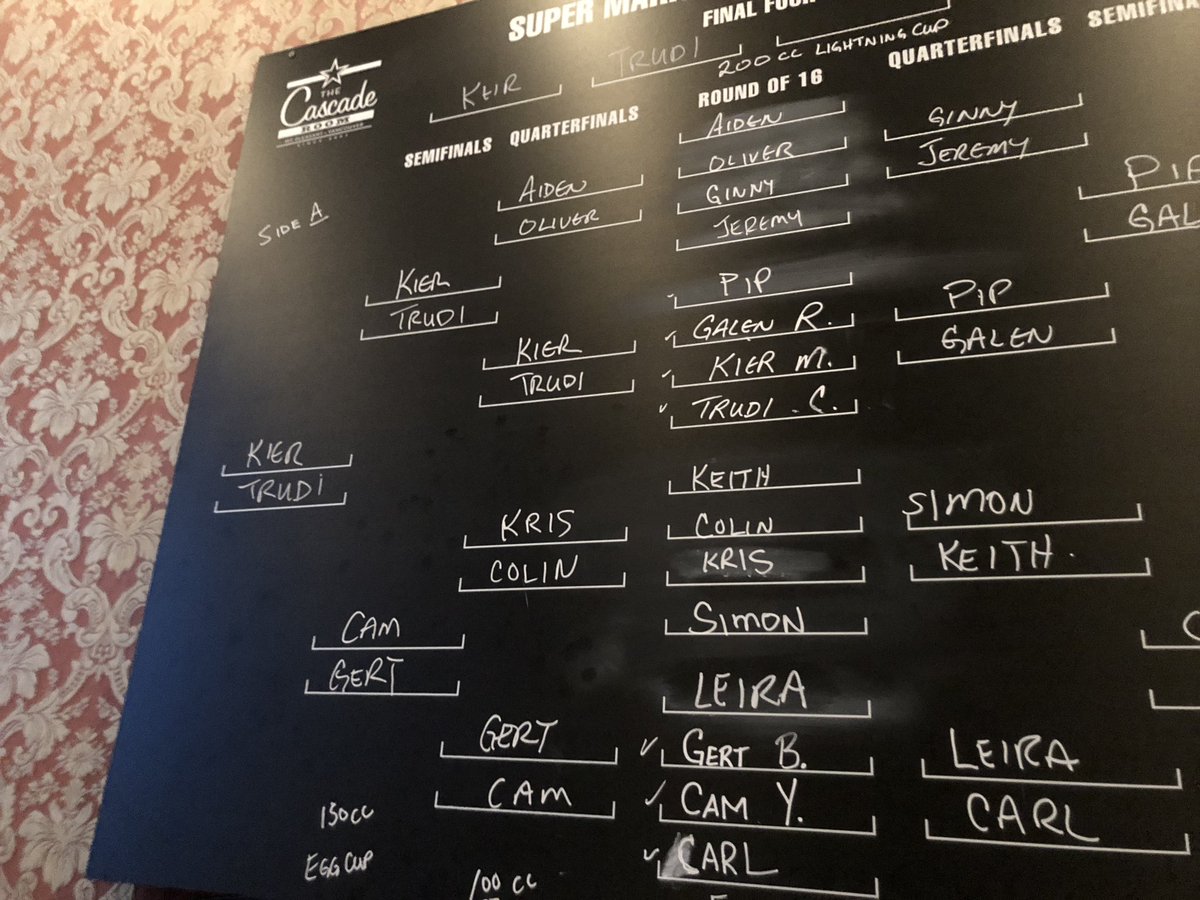 SUPER
FINAL
THE
Cascade
ROOM
MT. PLEASANT - VANCOUVER
KEIR
TRUDI
200 CC LIGHTNING CUP
SEMIFINALS
QUARTERFINALS
ROUND OF 16
QUARTERFINALS
SIDE A
KIER
TRUDI
KIER
TRUDI
CAM
GERT
150CC
EGG CUP
AIDEN
OLIVER
KIER
TRUDI
KRIS
COLIN
GERT
CAM
100 CC
AIDEN
OLIVER
GINNY
JEREMY
PIP
GALEN R.
KIER M.
TRUDI . C.
KEITH
COLIN
KRIS
SIMON
LEIRA
GERT B.
CAM Y.
CARL
GINNY
JEREMY
PIP
GALEN
SIMON
KEITH.
LEIRA
CARL